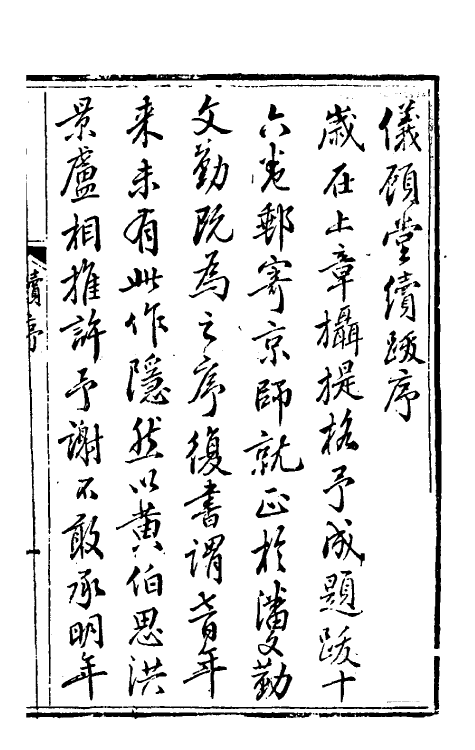 儀顧堂續跋序
歲在上章攝提格予成題跋十
六卷郵寄京師就正於潘文勤
文勤既為之序復書謂百年
来未有此作隱然以黄伯思洪
景盧相推許予謝不敢承明年
續序